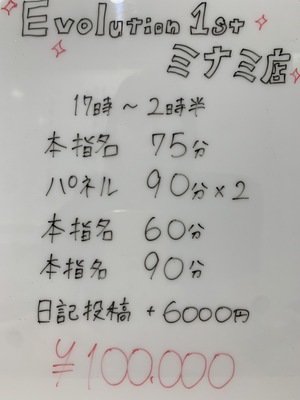 Evolution 1st
ミナミ店
17時～2時半
本指名 75分
パネル 90分×2
本指名 60分
本指名 90分
日記投稿 +6000円
¥100.000